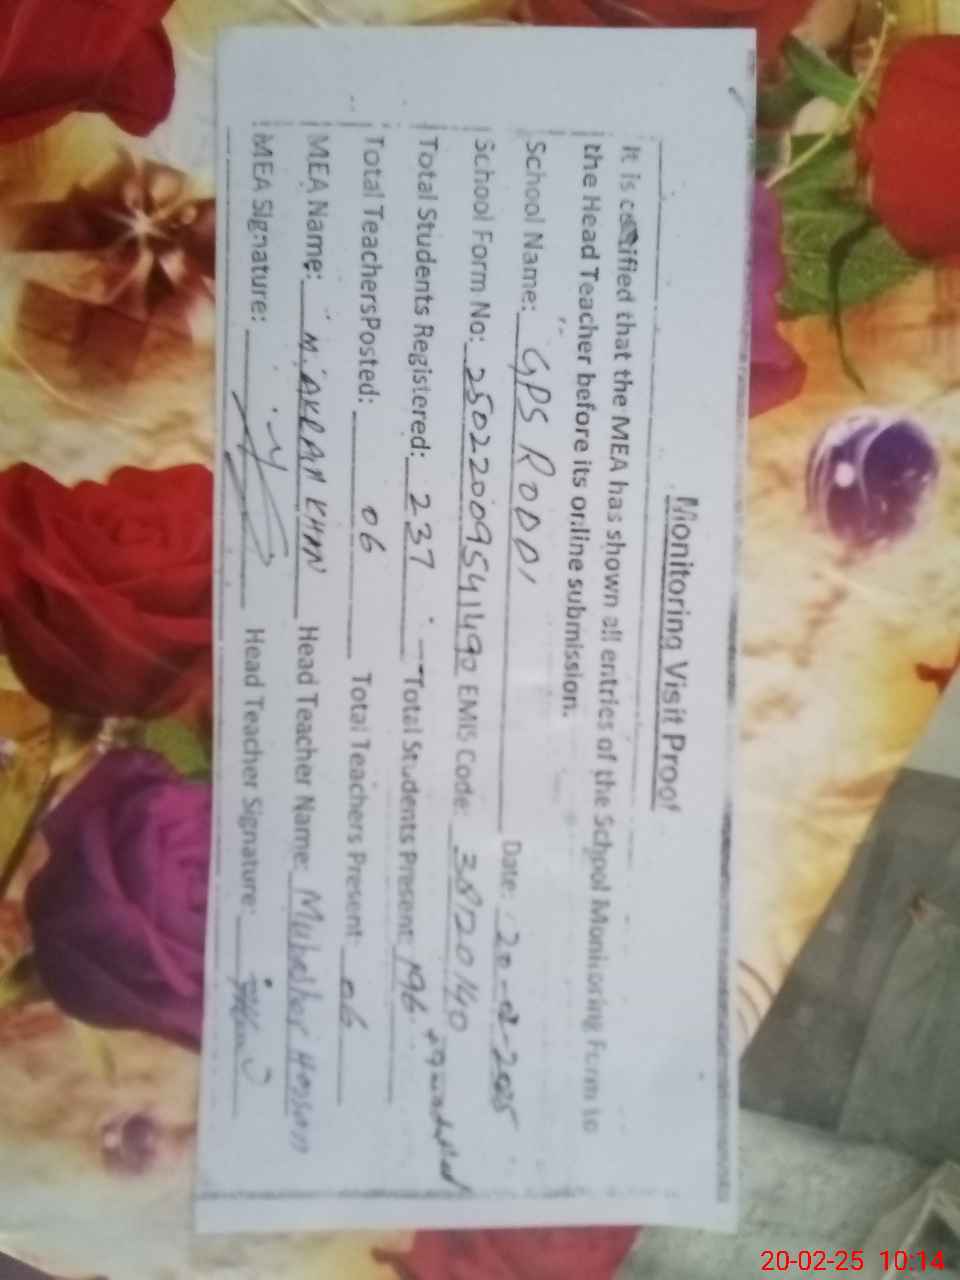 Monitoring Visit Proof
It is certified that the MEA has shown all entries of the School Monitoring Form to
the Head Teacher before its online submission.
School Name: GPS RODDI Date: 20-02-2025
School Form No: 25022009541490 EMIS Code: 38120140
Total Students Registered: 237 Total Students Present: 196
Total TeachersPosted: 06 Total Teachers Present: 06
MEA Name: M. AKRAM KHAN Head Teacher Name:
MEA Signature: Head Teacher Signature:
20-02-25 10:14